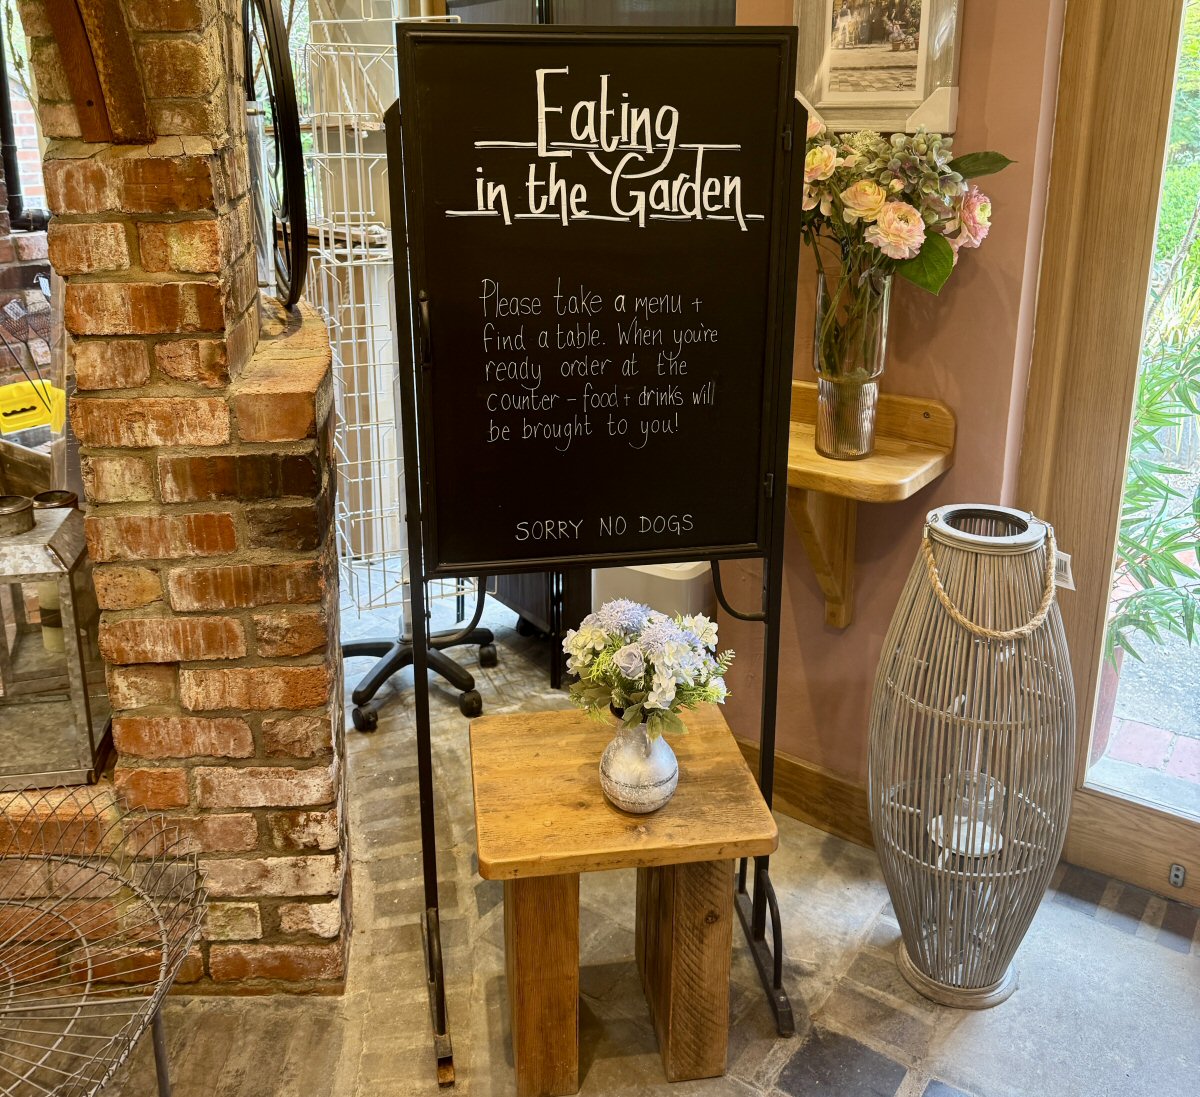 Eating
in the Garden
Please take a menu +
find a table. When you're
ready order at the
counter – food + drinks will
be brought to you!
SORRY NO DOGS